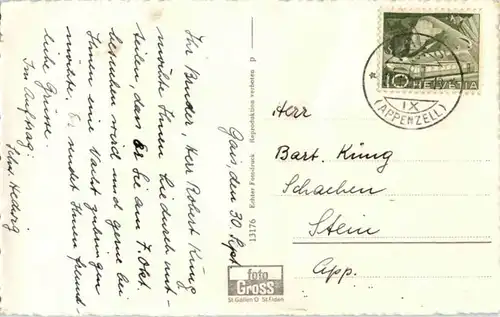 Gais, den 30. Sept.
Ihr Bruder, Herr Robert Küng
möchte Ihnen hiedurch mit-
teilen, dass er Sie am 7. Okt.
besuchen wird und gerne bei
Ihnen eine Nacht zubringen
möchte. Er sendet Ihnen freund-
liche Grüsse.
Im Auftrag:
Schw. Hedwig
13176 Echter Fotodruck Reproduktion verboten P
foto
Gross
St. Gallen O St. Fiden
10 HELVETIA
IX
(APPENZELL)
Herr
Bart. Küng
Schachen
Stein
App.